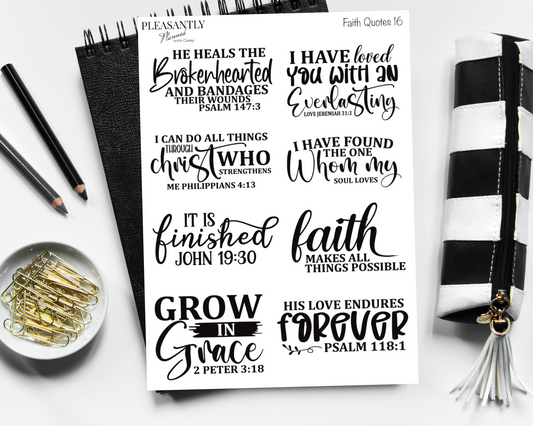 PLEASANTLY
Planned
with Casey
Faith Quotes 16
HE HEALS THE
Brokenhearted
AND BANDAGES
THEIR WOUNDS
PSALM 147:3
I HAVE loved
YOU WITH AN
Everlasting
LOVE JEREMIAH 31:3
I CAN DO ALL THINGS
THROUGH
christ WHO
STRENGTHENS
ME PHILIPPIANS 4:13
I HAVE FOUND
THE ONE
Whom my
SOUL LOVES
IT IS
finished
JOHN 19:30
faith
MAKES ALL
THINGS POSSIBLE
GROW
IN
Grace
2 PETER 3:18
HIS LOVE ENDURES
FOREVER
PSALM 118:1